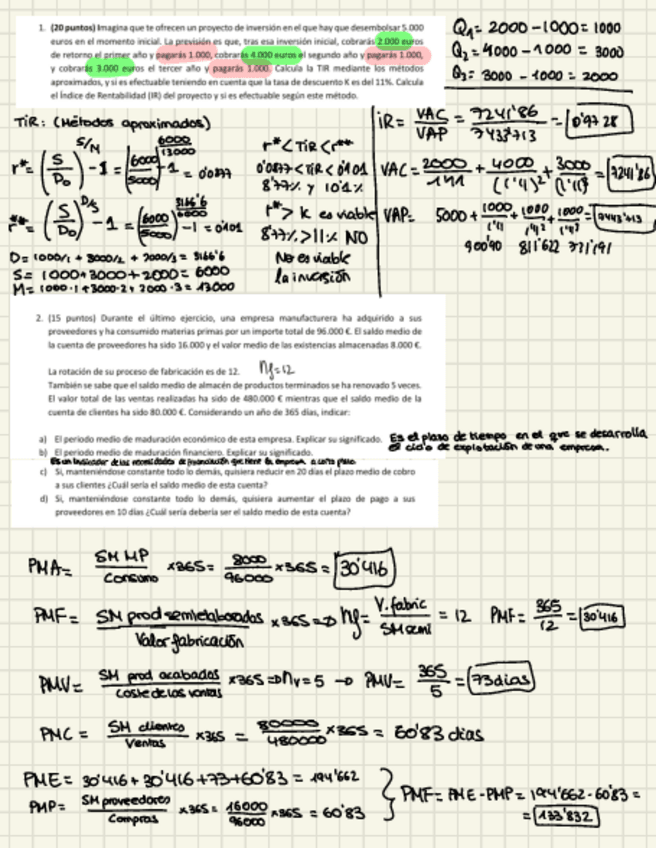 1. (20 puntos) Imagina que te ofrecen un proyecto de inversión en el que hay que desembolsar 5.000
euros en el momento inicial. La previsión es que, tras esa inversión inicial, cobrarás 2.000 euros
de retorno el primer año y pagarás 1.000, cobrarás 4.000 euros el segundo año y pagarás 1.000,
y cobrarás 3.000 euros el tercer año y pagarás 1.000. Calcula la TIR mediante los métodos
aproximados, y si es efectuable teniendo en cuenta que la tasa de descuento K es del 11%. Calcula
el Índice de Rentabilidad (IR) del proyecto y si es efectuable según este método.
Q1= 2000 -1000= 1000
Q2= 4000 -1000 = 3000
Q3= 3000 - 1000 = 2000
TiR: (Métodos aproximados)
r*= (S/D0)^S/M - 1 = (6000/5000)^6000/13000 - 1 = 0'0877
r**= (S/D0)^D/S - 1 = (6000/5000)^3166'6/6000 - 1 = 0'101
D= 1000/1 + 3000/2 + 2000/3 = 3166'6
S= 1000+3000+2000= 6000
M= 1000·1+3000·2+2000·3 = 13000
r*<TiR<r**
0'0877<TiR<0'101
8'77% y 10'1%
r*> k es viable
8'77%>11% NO
No es viable
la inversión
iR= VAC/VAP = 7241'86/7433'713 = 0'9728
VAC= 2000/1'11 + 4000/(1'11)² + 3000/(1'11)³ = 7241'86
VAP= 5000+ 1000/1'11 + 1000/1'11² + 1000/1'11³ = 7443'713
900'90 811'622 731'191
2. (15 puntos) Durante el último ejercicio, una empresa manufacturera ha adquirido a sus
proveedores y ha consumido materias primas por un importe total de 96.000 €. El saldo medio de
la cuenta de proveedores ha sido 16.000 y el valor medio de las existencias almacenadas 8.000 €.
La rotación de su proceso de fabricación es de 12. Nf=12
También se sabe que el saldo medio de almacén de productos terminados se ha renovado 5 veces.
El valor total de las ventas realizadas ha sido de 480.000 € mientras que el saldo medio de la
cuenta de clientes ha sido 80.000 €. Considerando un año de 365 días, indicar:
a) El periodo medio de maduración económico de esta empresa. Explicar su significado. Es el plazo de tiempo en el que se desarrolla
el ciclo de explotación de una empresa.
b) El periodo medio de maduración financiero. Explicar su significado.
Es un indicador de las necesidades de financiación que tiene la empresa a corto plazo
c) Si, manteniéndose constante todo lo demás, quisiera reducir en 20 días el plazo medio de cobro
a sus clientes ¿Cuál sería el saldo medio de esta cuenta?
d) Si, manteniéndose constante todo lo demás, quisiera aumentar el plazo de pago a sus
proveedores en 10 días ¿Cuál sería debería ser el saldo medio de esta cuenta?
PMA= SM MP/Consumo ×365= 8000/96000 ×365= 30'416
PMF= SM prod semielaborados/Valor fabricación ×365=> Nf= V.fabric/SM semi = 12 PMF= 365/12 = 30'416
PMV= SM prod acabados/Coste de los ventas ×365=> nv=5 → PMV= 365/5 = 73 dias
PMC = SM clientes/Ventas ×365 = 80000/480000 ×365 = 60'83 dias
PME= 30'416+30'416+73+60'83 = 194'662
PMP= SM proveedores/Compras ×365= 16000/96000 ×365 = 60'83
PMF= PME-PMP= 194'662-60'83 =
= 133'832